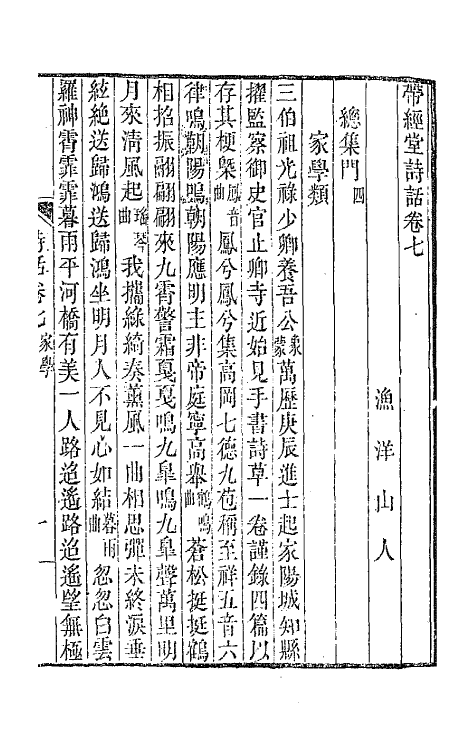 帶經堂詩話卷七
漁洋山人
總集門四
家學類
三伯祖光祿少卿養吾公象蒙萬歷庚辰進士起家陽城知縣
擢監察御史官止卿寺近始見手書詩草一卷謹錄四篇以
存其梗槩鳳音曲鳳兮鳳兮集高岡七德九苞稱至祥五音六
律鳴朝陽鳴朝陽應明主非帝庭寧高舉鶴鳴曲蒼松挺挺鶴
相招振翮翩翩來九霄警霜戛戛鳴九臯鳴九臯聲萬里明
月來清風起瑤琴曲我攜綠綺奏薰風一曲相思彈未終淚垂
絃絕送歸鴻送歸鴻坐明月人不見心如結暮雨曲忽忽白雲
羅神霄霏霏暮雨平河橋有美一人路迢遙路迢遙望無極
詩話卷七 家學 一